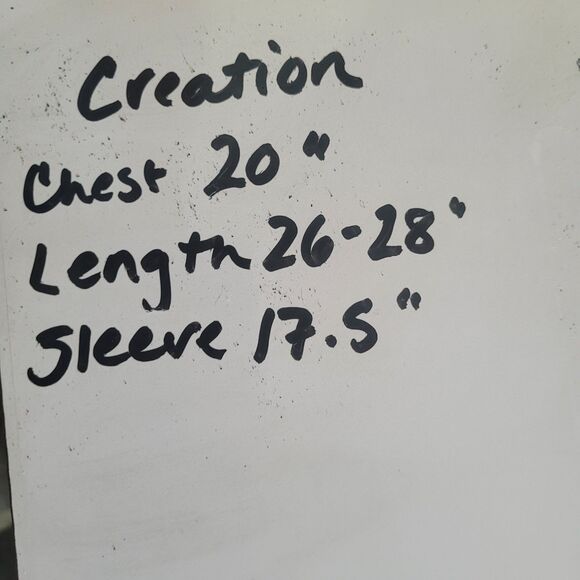 Creation
Chest 20"
Length 26-28"
Sleeve 17.5"